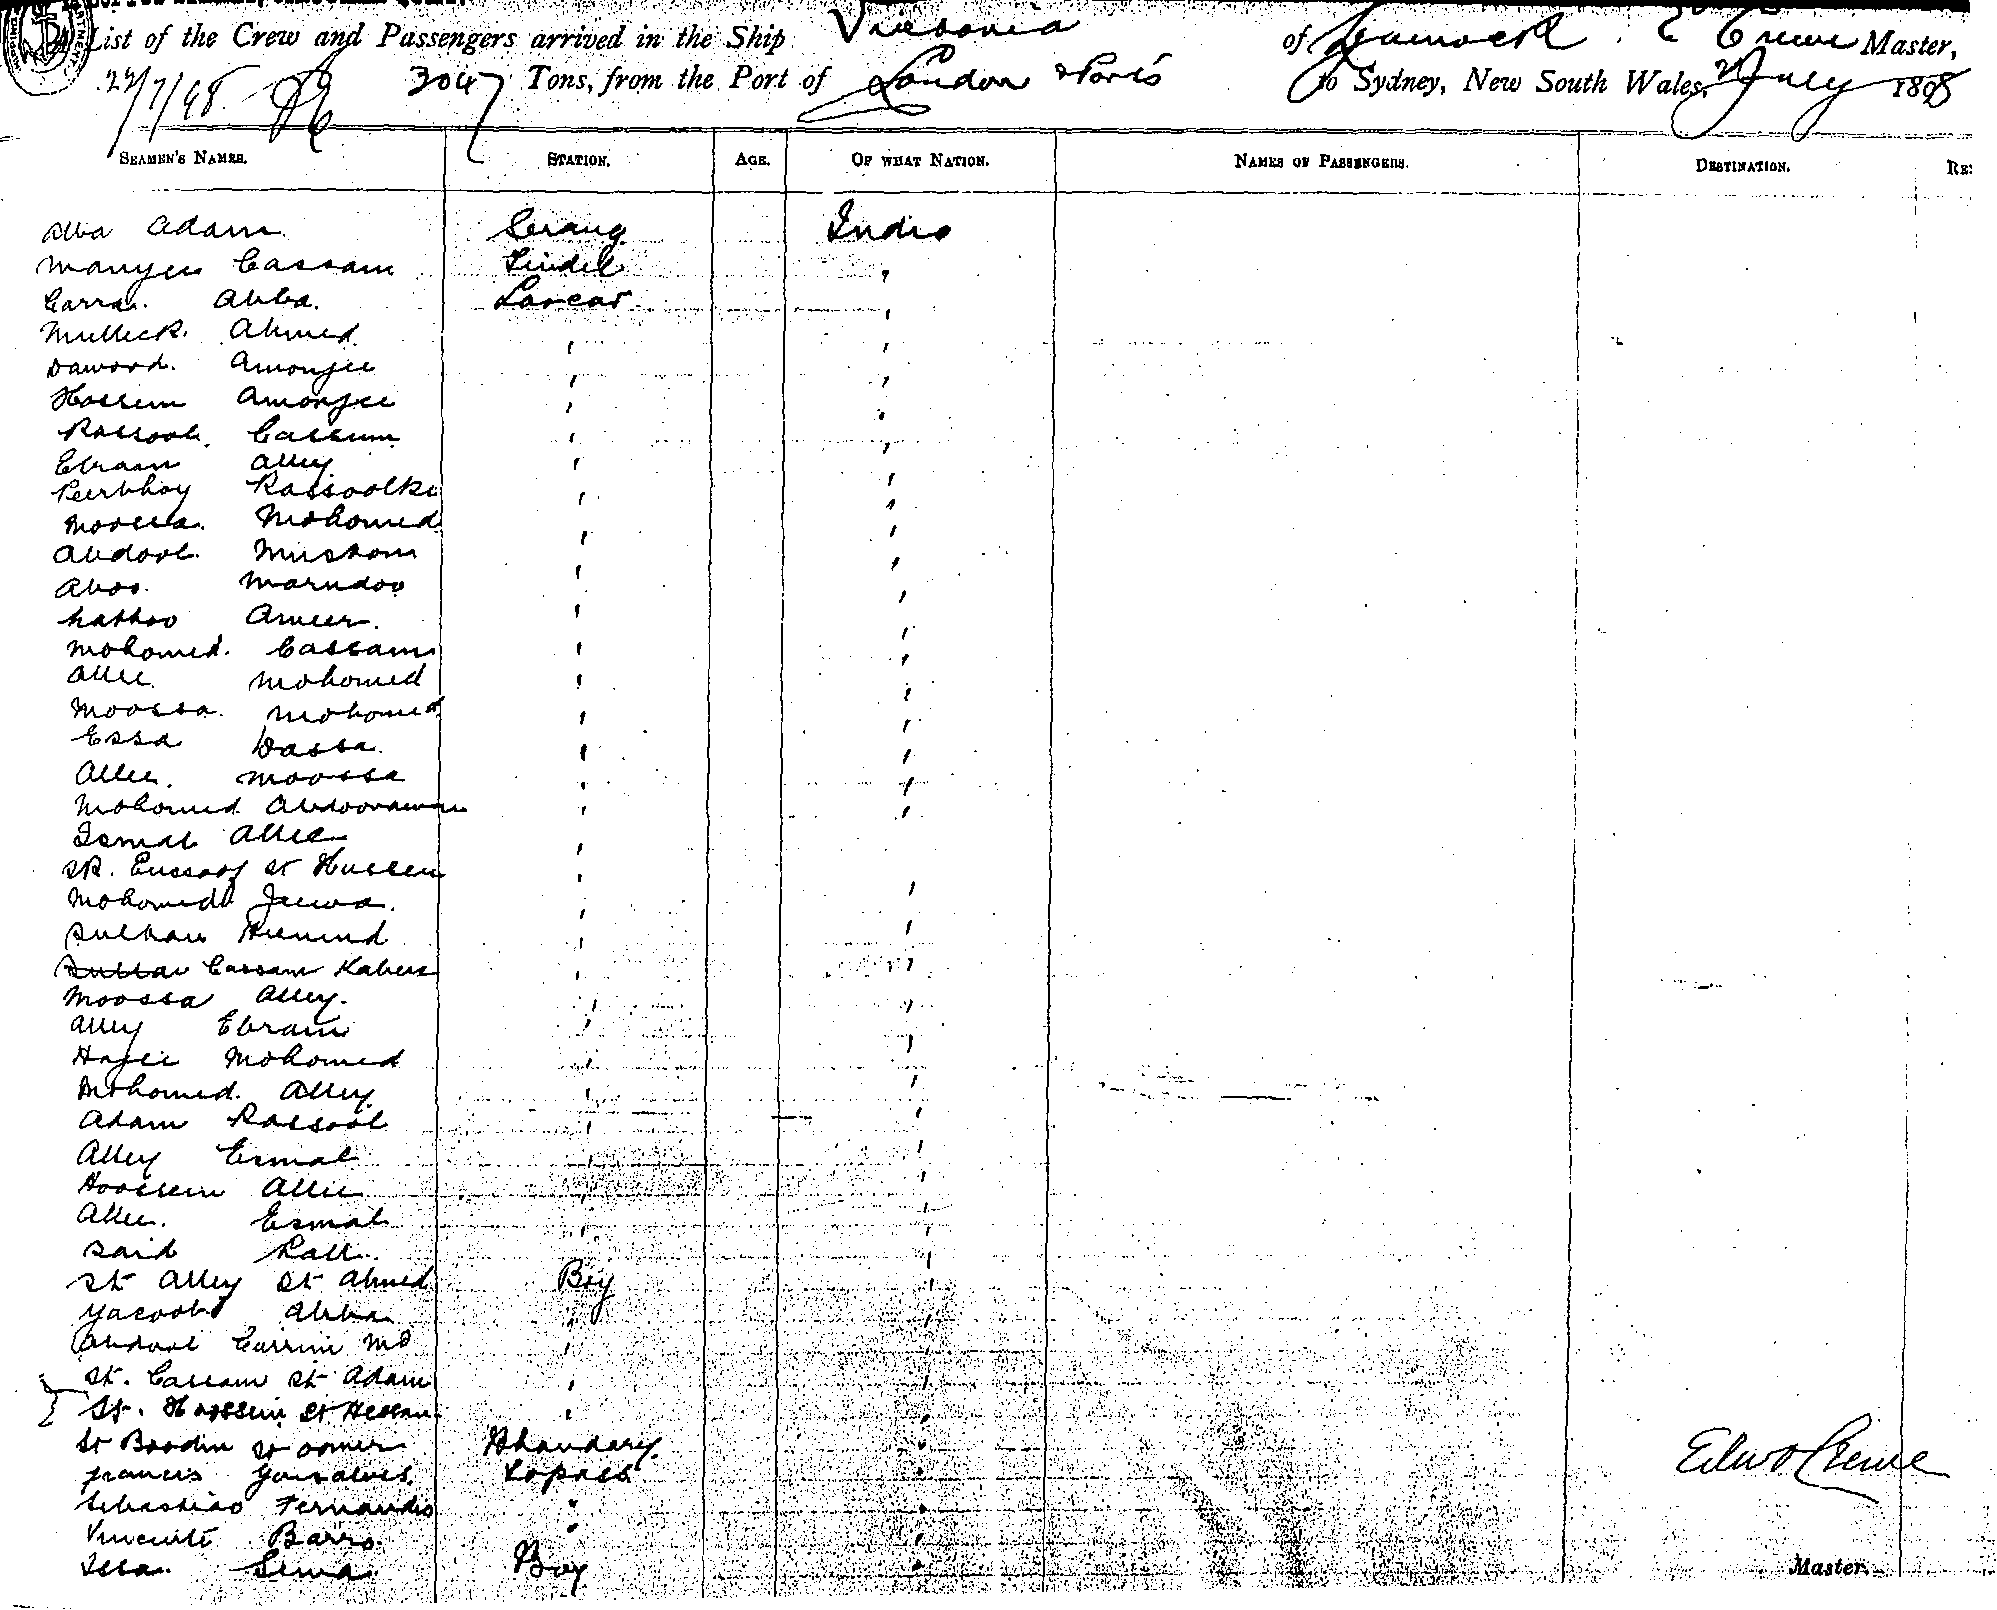 List of the Crew and Passengers arrived in the Ship of Greenock E Crewe Master,
22/7/98 3047 Tons, from the Port of London & Ports to Sydney, New South Wales, July 1898
SEAMEN'S NAMES. STATION. AGE. OF WHAT NATION. NAMES OF PASSENGERS. DESTINATION.
Abba Adam Serang India
Cassam Tindel "
Abba. Lascar "
Mulleck. Ahmed. " "
Dawood. Amonjee " "
Hossein Amonjee " "
Rassool. Cassum " "
Ebram Alley " "
Peerbhoy " "
Moossa. Mohomed " "
Abdool. " "
Aboo. " "
Nathoo Ameer. " "
Mohomed. Cassam " "
Allee. Mohomed " "
Moossa. Mohomed " "
Essa Dassa. " "
Allee. Moossa " "
Mohomed "
Ismal Allee "
Sk. Eussoof St Hussen " "
Mohomed Jeewa. " "
Sulhan " "
Cassam " "
Moossa Alley. " "
Alley Ebram " "
Hajee Mohomed " "
Mohomed. Alley " "
Adam Rassool " "
Alley Esmal " "
Hoossein Allie " "
Allee. Esmal " "
Said " "
St Alley St Ahmed Boy "
Yacoob Abba " "
Abdool Carrim Md " "
St. Cassam St Adam "
St. Hoossein St Hessan " "
St Boodin St Oomer Bhandary "
Francis Gonsalves "
Sebastiao Fernandis " "
Vincente Barro " "
Boy "
Edwd Crewe
Master.